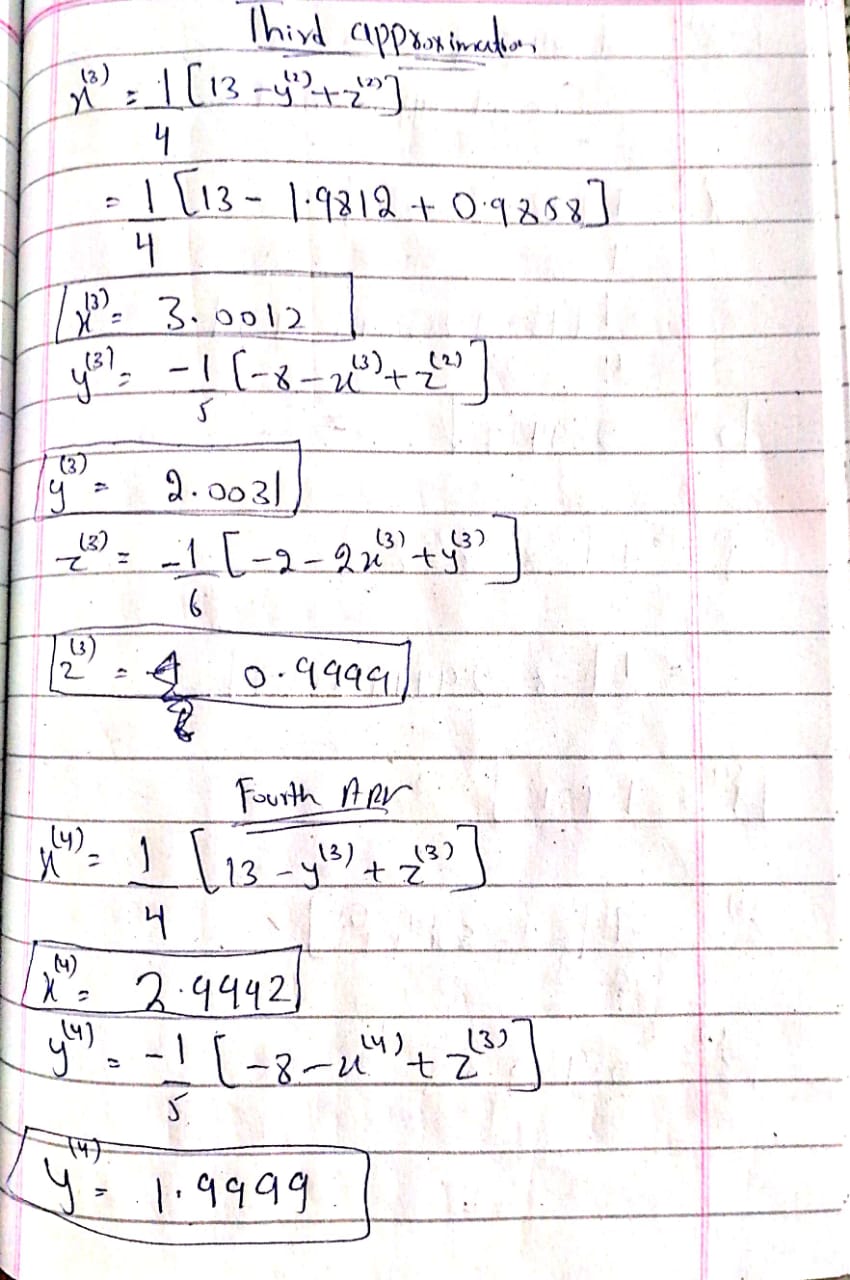 Third approximation
x⁽³⁾ = 1/4 [13 - y⁽²⁾ + z⁽²⁾]
= 1/4 [13 - 1.9812 + 0.9858]
x⁽³⁾ = 3.0012
y⁽³⁾ = -1/5 [-8 - x⁽³⁾ + z⁽²⁾]
y⁽³⁾ = 2.0031
z⁽³⁾ = -1/6 [-2 - 2x⁽³⁾ + y⁽³⁾]
z⁽³⁾ = 0.9999
Fourth APP
x⁽⁴⁾ = 1/4 [13 - y⁽³⁾ + z⁽³⁾]
x⁽⁴⁾ = 2.9992
y⁽⁴⁾ = -1/5 [-8 - x⁽⁴⁾ + z⁽³⁾]
y⁽⁴⁾ = 1.9999